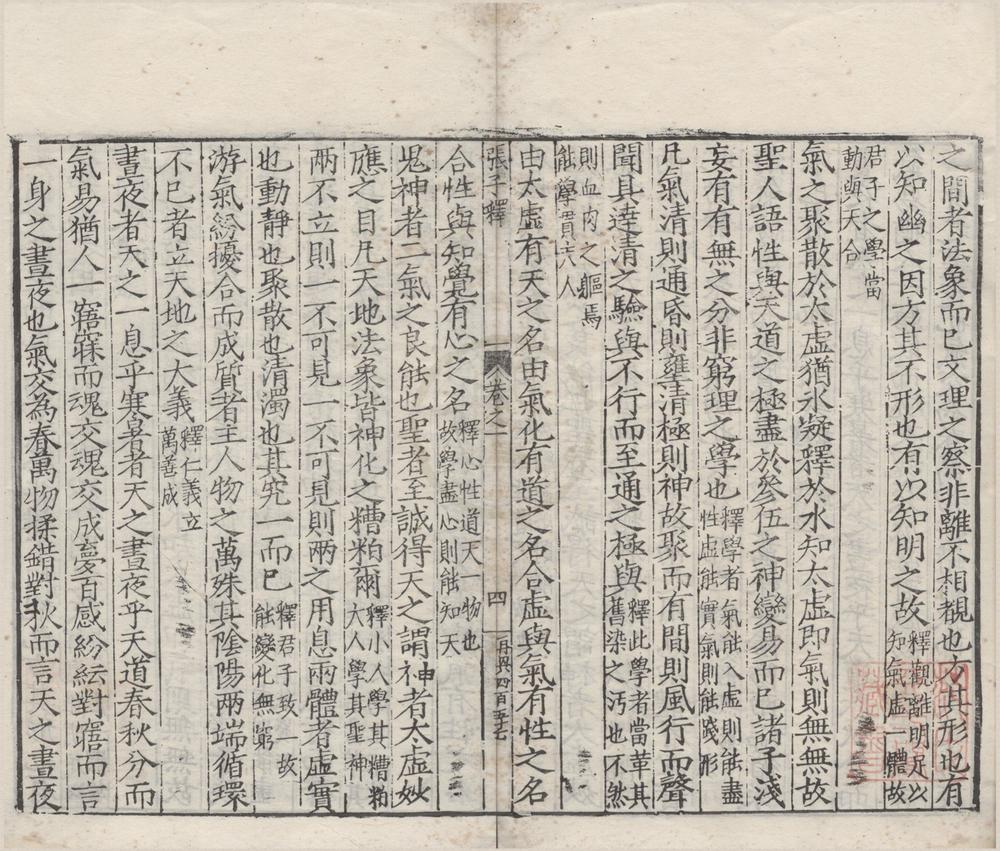 之間者法象而已文理之察非離不相覩也方其形也有
以知幽之因方其不形也有以知明之故
釋觀離明足以
知氣虛一體故
君子之學當
動與天合
氣之聚散於太虛猶氷凝釋於水知太虛即氣則無無故
聖人語性與天道之極盡於參伍之神變易而已諸子淺
妄有有無之分非窮理之學也
釋學者氣能入虛則能盡
性虛能實氣則能踐形
凡氣清則通昏則壅清極則神故聚而有間則風行而聲
聞具達清之驗與不行而至通之極與
釋此學者當革其
舊染之汚也不然
則血肉之軀焉
能學貫天人
由太虛有天之名由氣化有道之名合虛與氣有性之名
張子釋 卷之一 四
合性與知覺有心之名
釋心性道天一物也
故學盡心則能知天
鬼神者二氣之良能也聖者至誠得天之謂神者太虛妙
應之目凡天地法象皆神化之糟粕爾
釋小人學其糟粕
大人學其聖神
兩不立則一不可見一不可見則兩之用息兩體者虛實
也動靜也聚散也清濁也其究一而已
釋君子致一故
能變化無窮
游氣紛擾合而成質者生人物之萬殊其陰陽兩端循環
不已者立天地之大義
釋仁義立
萬善成
晝夜者天之一息乎寒暑者天之晝夜乎天道春秋分而
氣易猶人一寤寐而魂交魂交成夢百感紛紜對寤而言
一身之晝夜也氣交為春萬物揉錯對秋而言天之晝夜